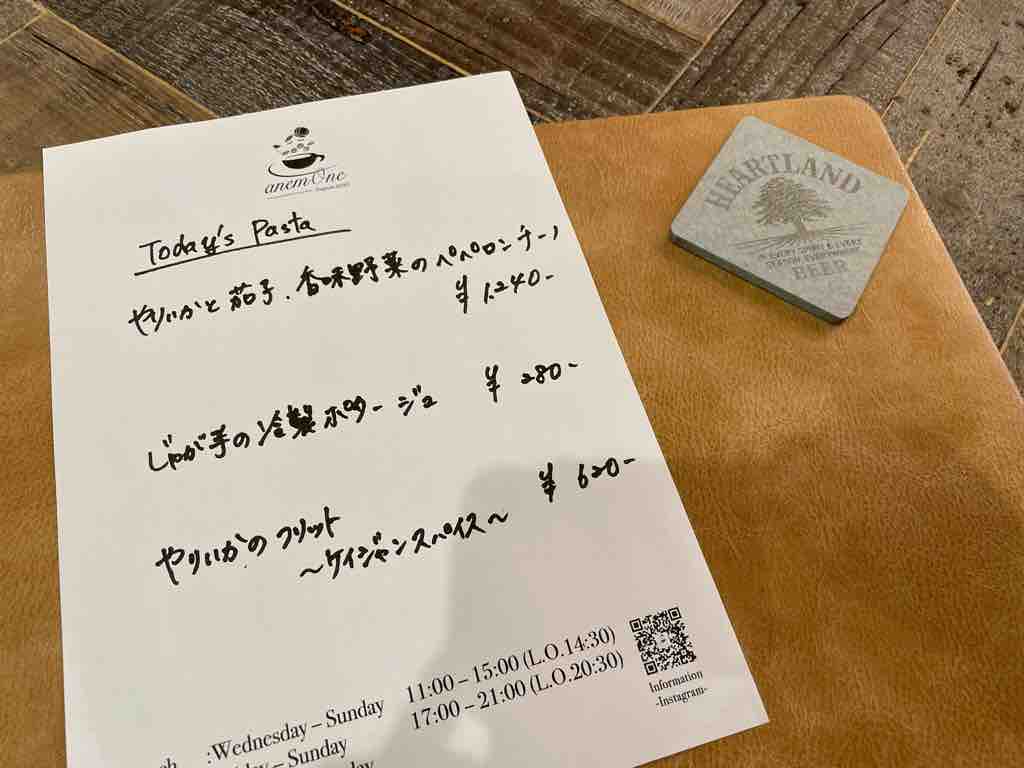 anem·One
Today's Pasta
やりいかと茄子、香味野菜のペペロンチーノ
¥1,240-
じゃが芋の冷製ポタージュ ¥280-
やりいかのフリット ¥620-
～ケイジャンスパイス～
:Wednesday – Sunday 11:00 – 15:00 (L.O.14:30)
– Sunday 17:00 – 21:00 (L.O.20:30)
Information
-Instagram-
HEARTLAND
BEER